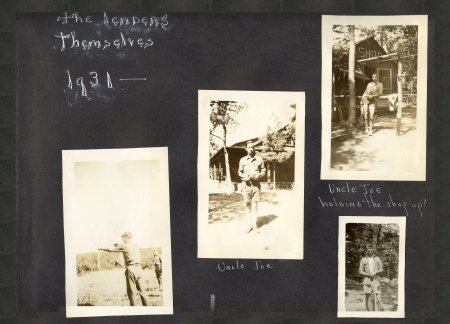 the LEADERS
Themselves
1931 —
Uncle Joe
Uncle Joe
holding the shop up?